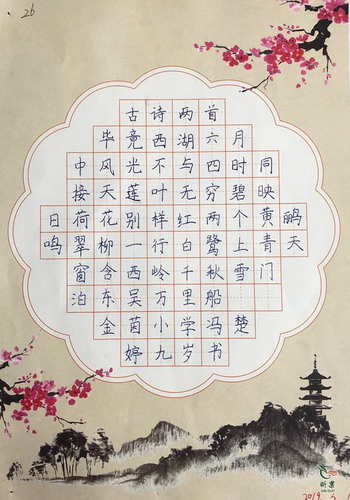 26
古诗两首
毕竟西湖六月
中风光不与四时同
接天莲叶无穷碧映
日荷花别样红两个黄鹂
鸣翠柳一行白鹭上青天
窗含西岭千秋雪门
泊东吴万里船
金茵小学冯楚
婷九岁书
2019